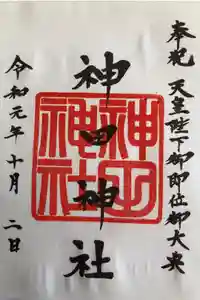 奉祝 天皇陛下御即位御大典
神田神社
令和元年十月二日
神田神社